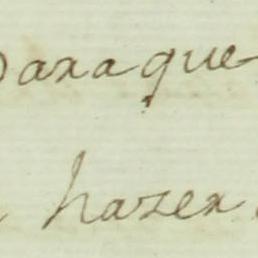 Paraque
hazer